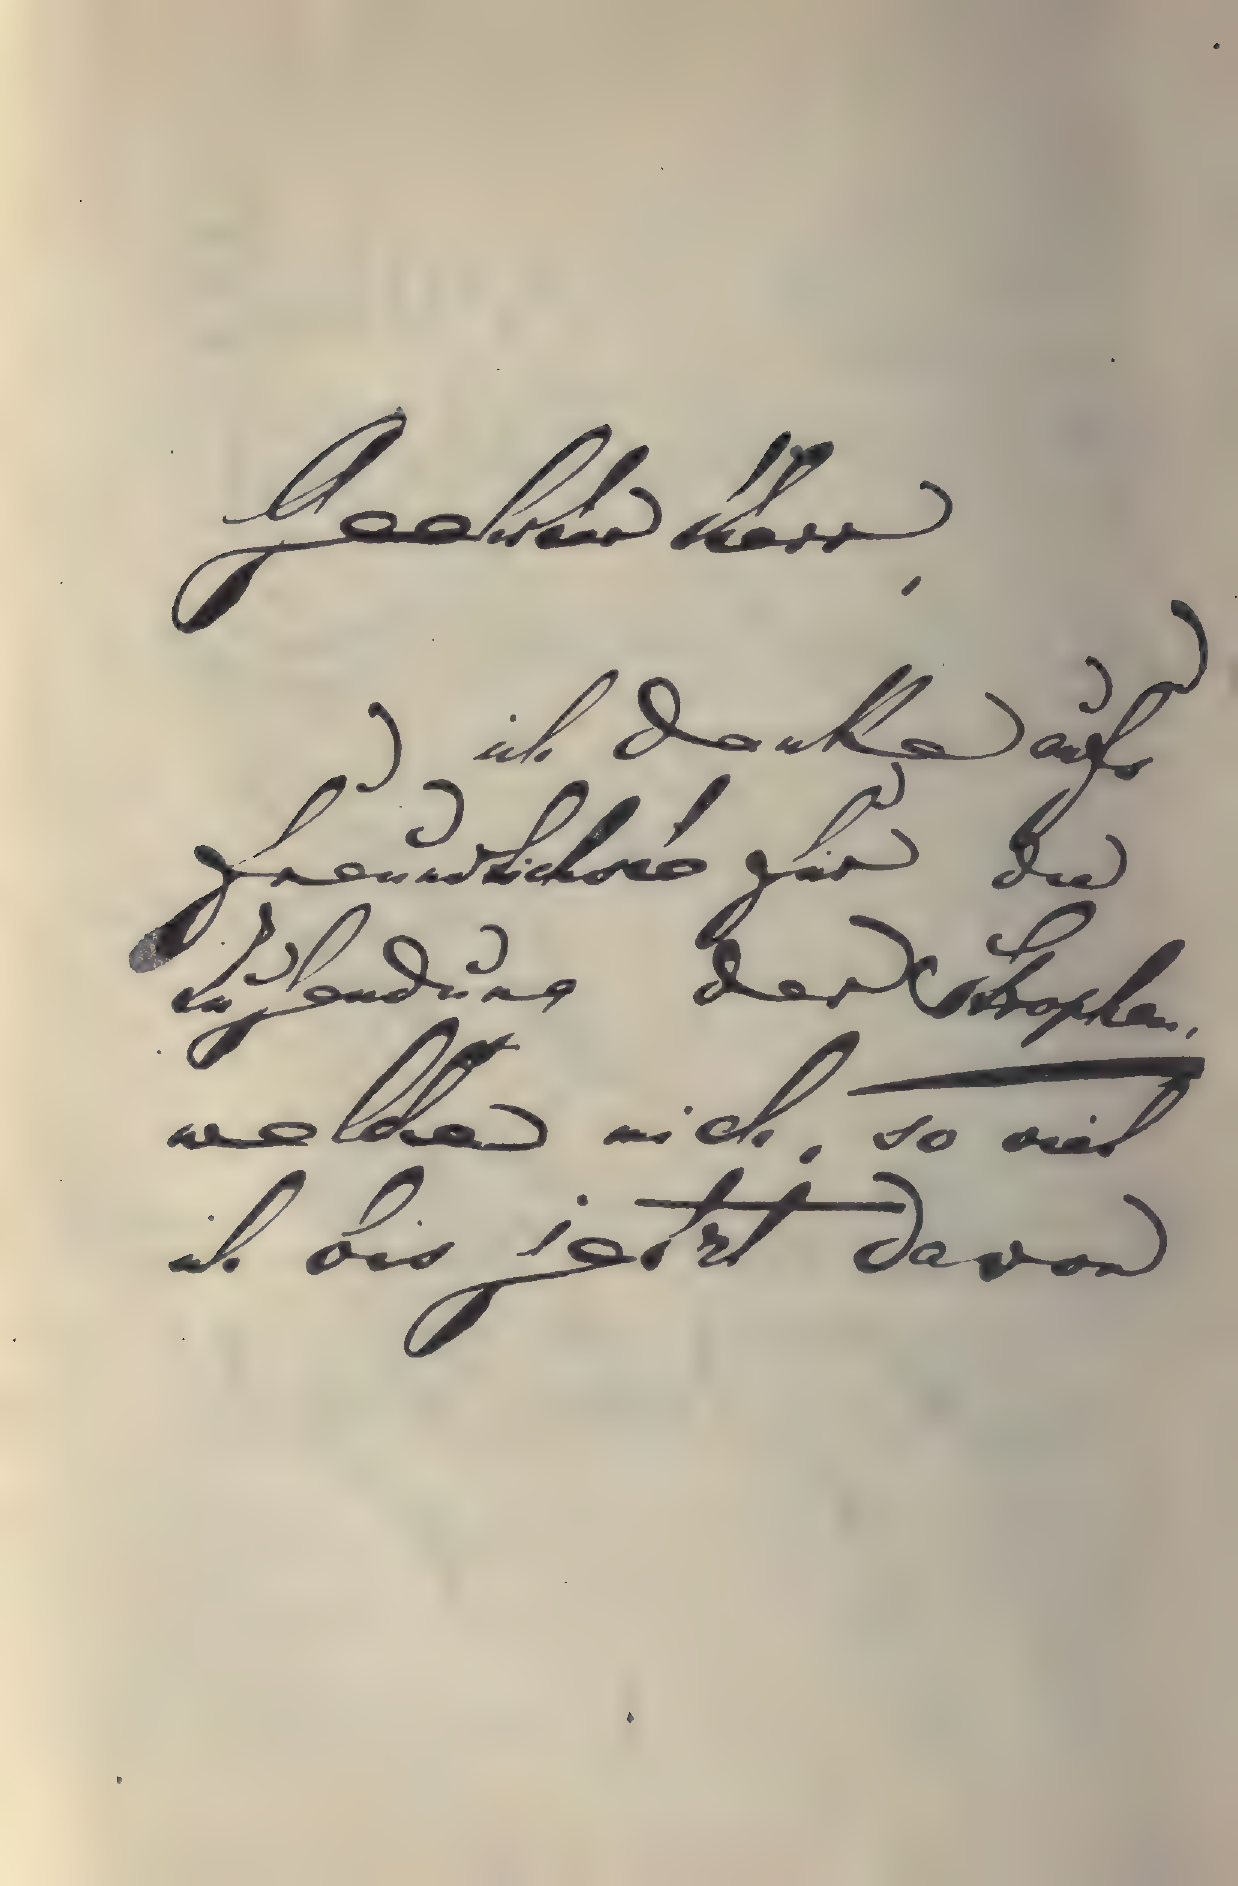 Geehrter Herr,
ich danke aufs
freundlichste für die
Zusendung der Strophen,
welche mich, so viel
ich bis jetzt davon